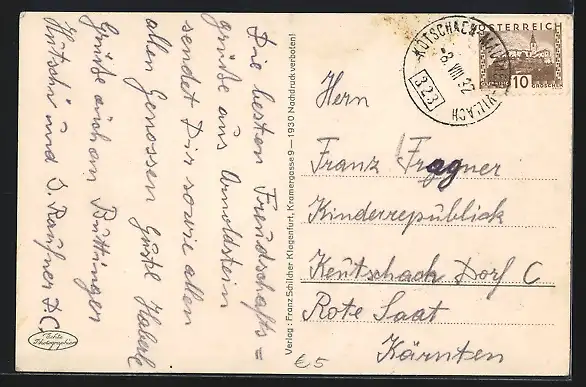 Die besten Freundschafts=
grüße aus Arnoldstein
sendet Dir sowie allen
allen Genossen Gustl Haberl
Grüße auch an Buttinger
und J.
Echte
Photographie
Verlag: Franz Schilcher Klagenfurt, Kramergasse 9 — 1930 Nachdruck verboten!
ÖSTERREICH
10
GROSCHEN
KÖTSCHACH-MAUTHEN
VILLACH
8. VIII 32
323
Hern
Franz Fragner
Kinderrepublick
Keutschach Dorf C
Rote Saat
Kärnten
€5